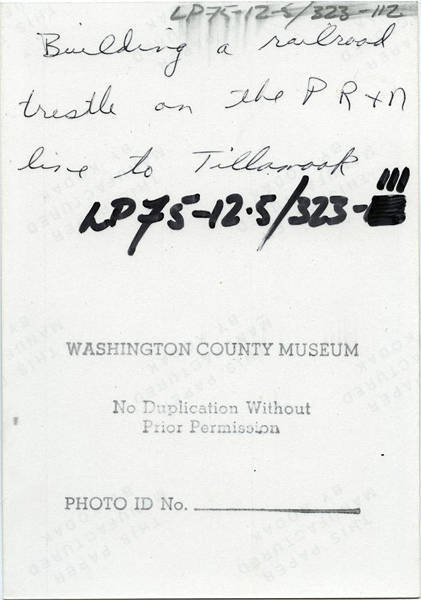 LP75-12-5/323-112
Building a railroad
trestle on the P R & N
line to Tillamook
LP75-12.5/323-111
WASHINGTON COUNTY MUSEUM
No Duplication Without
Prior Permission
PHOTO ID No.